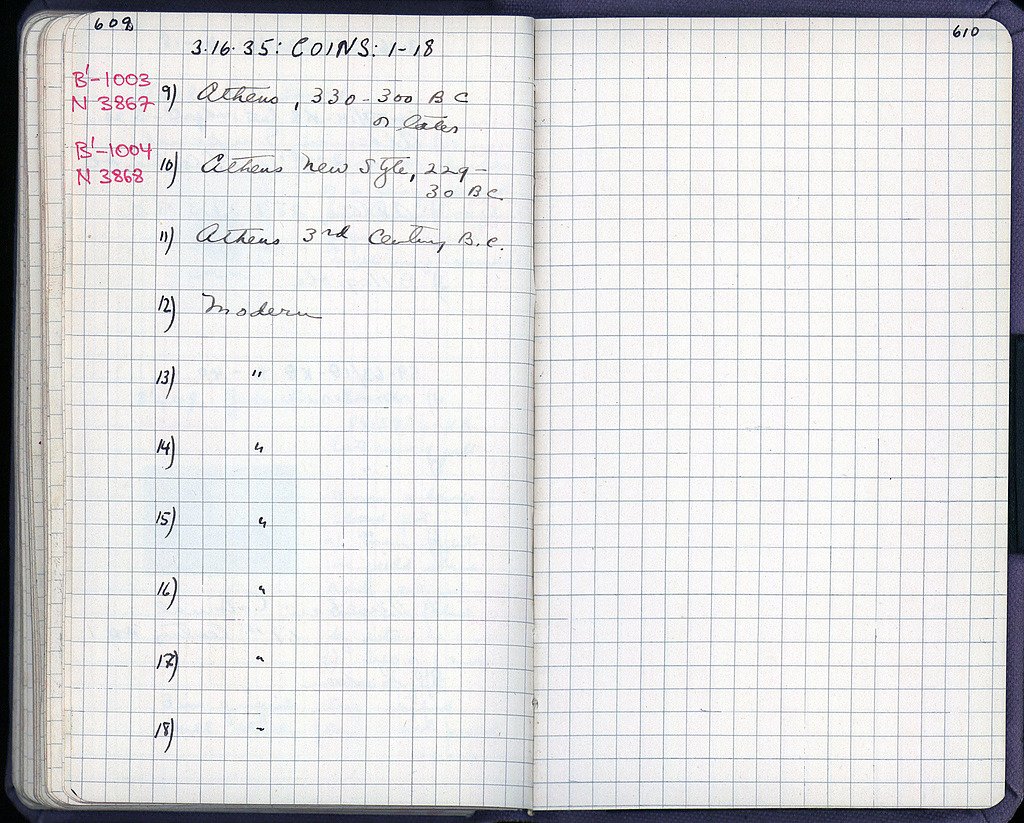 609
3·16·35: COINS: 1-18
B'-1003
N 3867
9) Athens, 330-300 BC
or later
B'-1004
N 3868
10) Athens New Style, 229-
30 BC
11) Athens 3rd Century B.C.
12) Modern
13) "
14) "
15) "
16) "
17) "
18) "
610